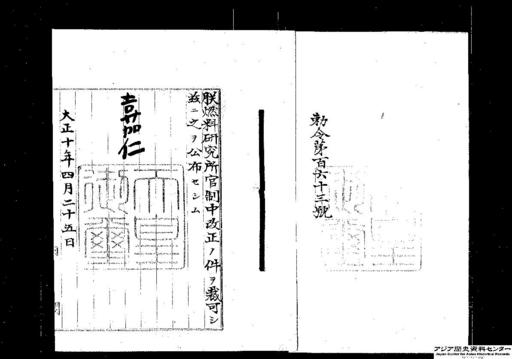 勅令第百六十三號
朕燃料研究所官制中改正ノ件ヲ裁可シ
茲ニ之ヲ公布セシム
嘉仁
天皇御璽
大正十年四月二十五日
アジア歴史資料センター
Japan Center for Asian Historical Records